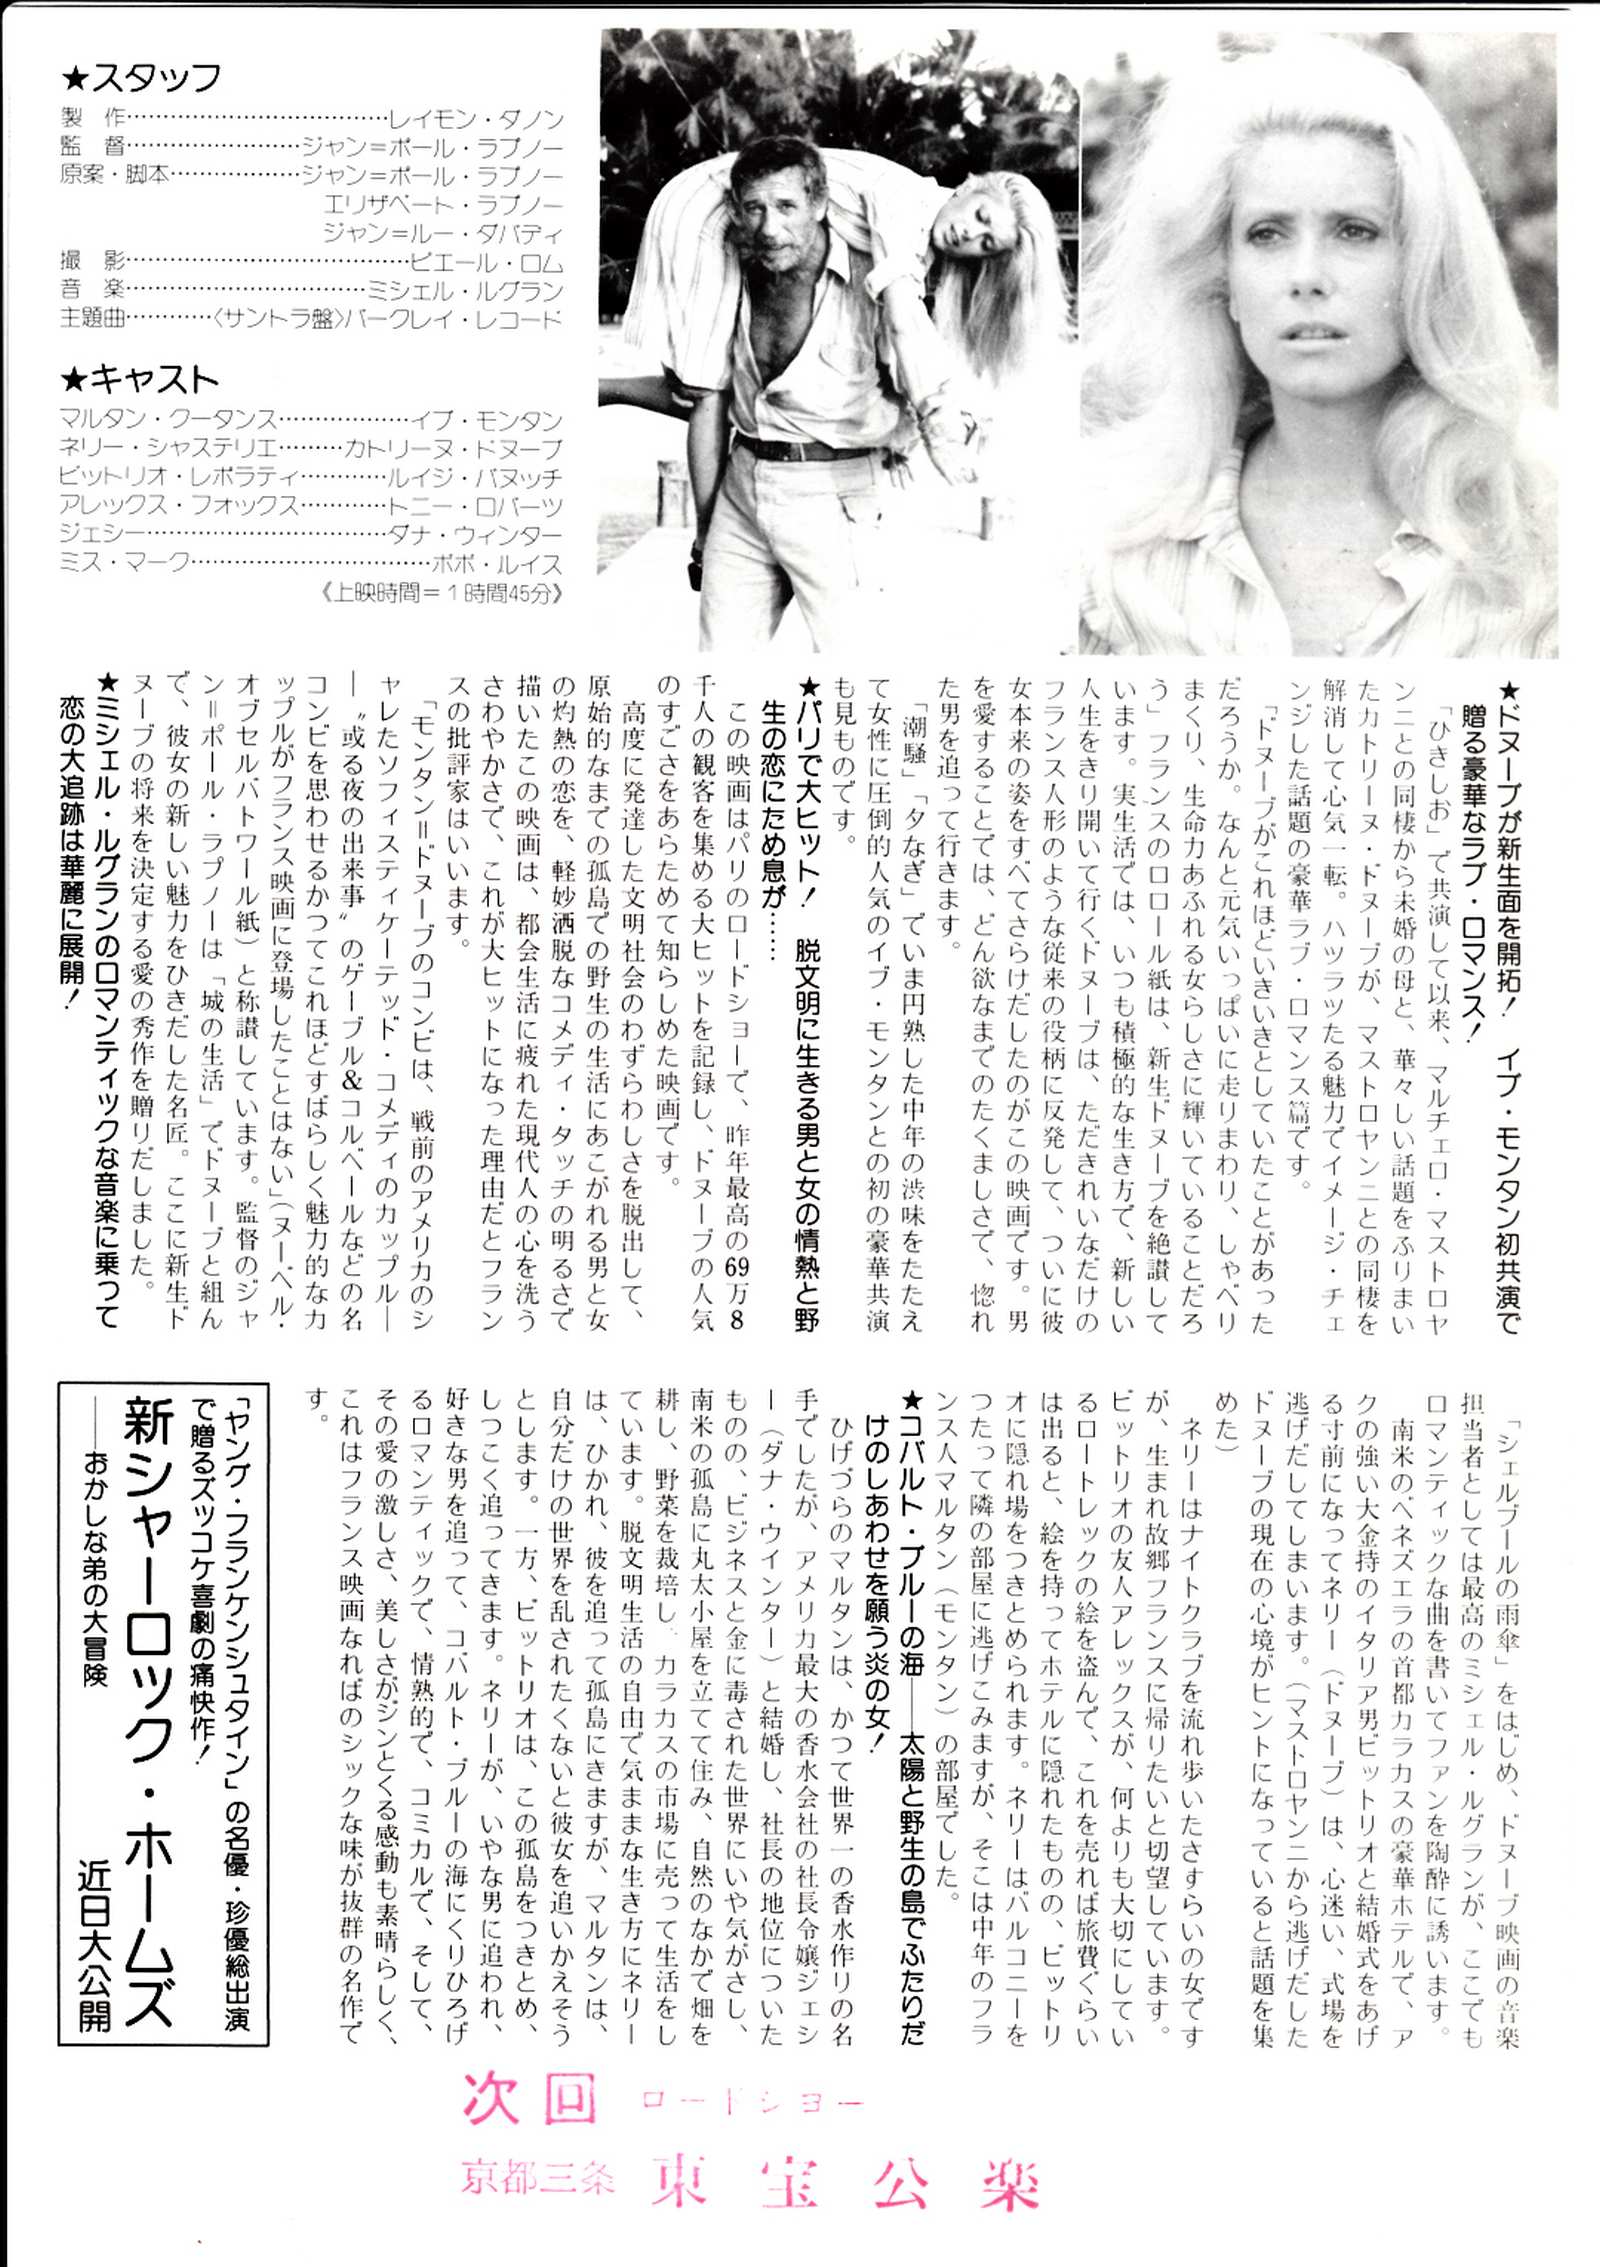 ★スタッフ
製　作…………………………………レイモン・ダノン
監　督………………………ジャン＝ポール・ラプノー
原案・脚本………………ジャン＝ポール・ラプノー
エリザベート・ラプノー
ジャン＝ルー・ダバディ
撮　影…………………………………ピエール・ロム
音　楽……………………………ミシェル・ルグラン
主題曲…………〈サントラ盤〉バークレイ・レコード
★キャスト
マルタン・クータンス………………イブ・モンタン
ネリー・シャステリエ………カトリーヌ・ドヌーブ
ビットリオ・レポラティ…………ルイジ・バヌッチ
アレックス・フォックス…………トニー・ロバーツ
ジェシー……………………………ダナ・ウィンター
ミス・マーク……………………………ボボ・ルイス
《上映時間＝１時間45分》
★ドヌーブが新生面を開拓！　イブ・モンタン初共演で
贈る豪華なラブ・ロマンス！
「ひきしお」で共演して以来、マルチェロ・マストロヤ
ンニとの同棲から未婚の母と、華々しい話題をふりまい
たカトリーヌ・ドヌーブが、マストロヤンニとの同棲を
解消して心気一転。ハツラツたる魅力でイメージ・チェ
ンジした話題の豪華ラブ・ロマンス篇です。
「ドヌーブがこれほどいきいきとしていたことがあった
だろうか。なんと元気いっぱいに走りまわり、しゃべり
まくり、生命力あふれる女らしさに輝いていることだろ
う」フランスのロロール紙は、新生ドヌーブを絶讃して
います。実生活では、いつも積極的な生き方で、新しい
人生をきり開いて行くドヌーブは、ただきれいなだけの
フランス人形のような従来の役柄に反発して、ついに彼
女本来の姿をすべてさらけだしたのがこの映画です。男
を愛することでは、どん欲なまでのたくましさで、惚れ
た男を追って行きます。
「潮騒」「夕なぎ」でいま円熟した中年の渋味をたたえ
て女性に圧倒的人気のイブ・モンタンとの初の豪華共演
も見ものです。
★パリで大ヒット！　脱文明に生きる男と女の情熱と野
生の恋にため息が……
この映画はパリのロードショーで、昨年最高の69万8
千人の観客を集める大ヒットを記録し、ドヌーブの人気
のすごさをあらためて知らしめた映画です。
高度に発達した文明社会のわずらわしさを脱出して、
原始的なまでの孤島での野生の生活にあこがれる男と女
の灼熱の恋を、軽妙洒脱なコメディ・タッチの明るさで
描いたこの映画は、都会生活に疲れた現代人の心を洗う
さわやかさで、これが大ヒットになった理由だとフラン
スの批評家はいいます。
「モンタン＝ドヌーブのコンビは、戦前のアメリカのシ
ャレたソフィスティケーテッド・コメディのカップル―
―〝或る夜の出来事〟のゲーブル＆コルベールなどの名
コンビを思わせるかつてこれほどすばらしく魅力的なカ
ップルがフランス映画に登場したことはない」（ヌーベル・
オブセルバトワール紙）と称讃しています。監督のジャ
ン＝ポール・ラプノーは「城の生活」でドヌーブと組ん
で、彼女の新しい魅力をひきだした名匠。ここに新生ド
ヌーブの将来を決定する愛の秀作を贈りだしました。
★ミシェル・ルグランのロマンティックな音楽に乗って
恋の大追跡は華麗に展開！
「シェルブールの雨傘」をはじめ、ドヌーブ映画の音楽
担当者としては最高のミシェル・ルグランが、ここでも
ロマンティックな曲を書いてファンを陶酔に誘います。
南米のベネズエラの首都カラカスの豪華ホテルで、ア
クの強い大金持のイタリア男ビットリオと結婚式をあげ
る寸前になってネリー（ドヌーブ）は、心迷い、式場を
逃げだしてしまいます。（マストロヤンニから逃げだした
ドヌーブの現在の心境がヒントになっていると話題を集
めた）
ネリーはナイトクラブを流れ歩いたさすらいの女です
が、生まれ故郷フランスに帰りたいと切望しています。
ビットリオの友人アレックスが、何よりも大切にしてい
るロートレックの絵を盗んで、これを売れば旅費ぐらい
は出ると、絵を持ってホテルに隠れたものの、ビットリ
オに隠れ場をつきとめられます。ネリーはバルコニーを
つたって隣の部屋に逃げこみますが、そこは中年のフラ
ンス人マルタン（モンタン）の部屋でした。
★コバルト・ブルーの海――太陽と野生の島でふたりだ
けのしあわせを願う炎の女！
ひげづらのマルタンは、かつて世界一の香水作りの名
手でしたが、アメリカ最大の香水会社の社長令嬢ジェシ
ー（ダナ・ウインター）と結婚し、社長の地位についた
ものの、ビジネスと金に毒された世界にいや気がさし、
南米の孤島に丸太小屋を立てて住み、自然のなかで畑を
耕し、野菜を裁培し、カラカスの市場に売って生活をし
ています。脱文明生活の自由で気ままな生き方にネリー
は、ひかれ、彼を追って孤島にきますが、マルタンは、
自分だけの世界を乱されたくないと彼女を追いかえそう
とします。一方、ビットリオは、この孤島をつきとめ、
しつこく追ってきます。ネリーが、いやな男に追われ、
好きな男を追って、コバルト・ブルーの海にくりひろげ
るロマンティックで、情熱的で、コミカルで、そして、
その愛の激しさ、美しさがジンとくる感動も素晴らしく、
これはフランス映画なればのシックな味が抜群の名作で
す。
「ヤング・フランケンシュタイン」の名優・珍優総出演
で贈るズッコケ喜劇の痛快作！
新シャーロック・ホームズ
――おかしな弟の大冒険
近日大公開
次回 ロードショー
京都三条 東宝公楽